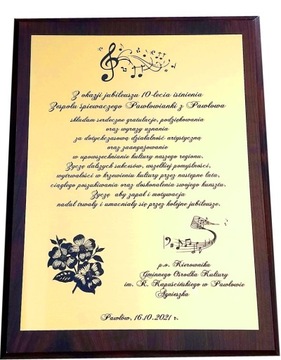 Z okazji jubileuszu 10-lecia istnienia
Zespołu śpiewaczego Pawłowianki z Pawłowa
składam serdeczne gratulacje, podziękowania
oraz wyrazy uznania
za dotychczasową działalność artystyczną
oraz zaangażowanie
w upowszechnianie kultury naszego regionu.
Życzę dalszych sukcesów, wszelkiej pomyślności,
wytrwałości w krzewieniu kultury przez następne lata,
ciągłego poszukiwania oraz doskonalenia swojego kunsztu.
Życzę aby zapał i motywacja
nadal trwały i umacniały się przez kolejne jubileusze.
p.o. Kierownika
Gminnego Ośrodka Kultury
im. R. Kapuścińskiego w Pawłowie
Agnieszka
Pawłów, 16.10.2021 r.